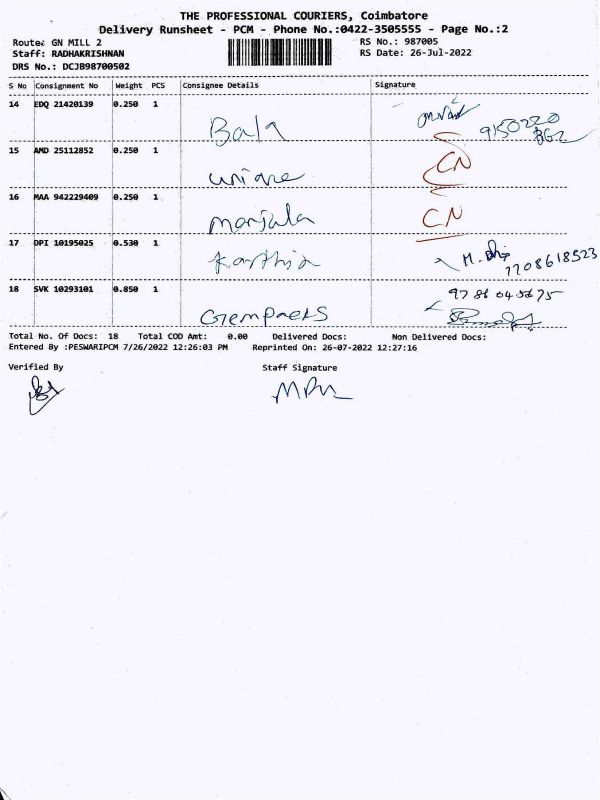 THE PROFESSIONAL COURIERS, Coimbatore
Delivery Runsheet - PCM - Phone No.:0422-3505555 - Page No.:2
Route: GN MILL 2 RS No.: 987005
Staff: RADHAKRISHNAN RS Date: 26-Jul-2022
DRS No.: DCJB98700502
S No Consignment No Weight PCS Consignee Details Signature
14 EDQ 21420139 0.250 1 Bala
15 AMD 25112852 0.250 1 unique CN
16 MAA 942229409 0.250 1 manjula CN
17 DPI 10195025 0.530 1 7708618523
18 SVK 10293101 0.850 1
Total No. Of Docs: 18 Total COD Amt: 0.00 Delivered Docs: Non Delivered Docs:
Entered By :PESWARIPCM 7/26/2022 12:26:03 PM Reprinted On: 26-07-2022 12:27:16
Verified By Staff Signature